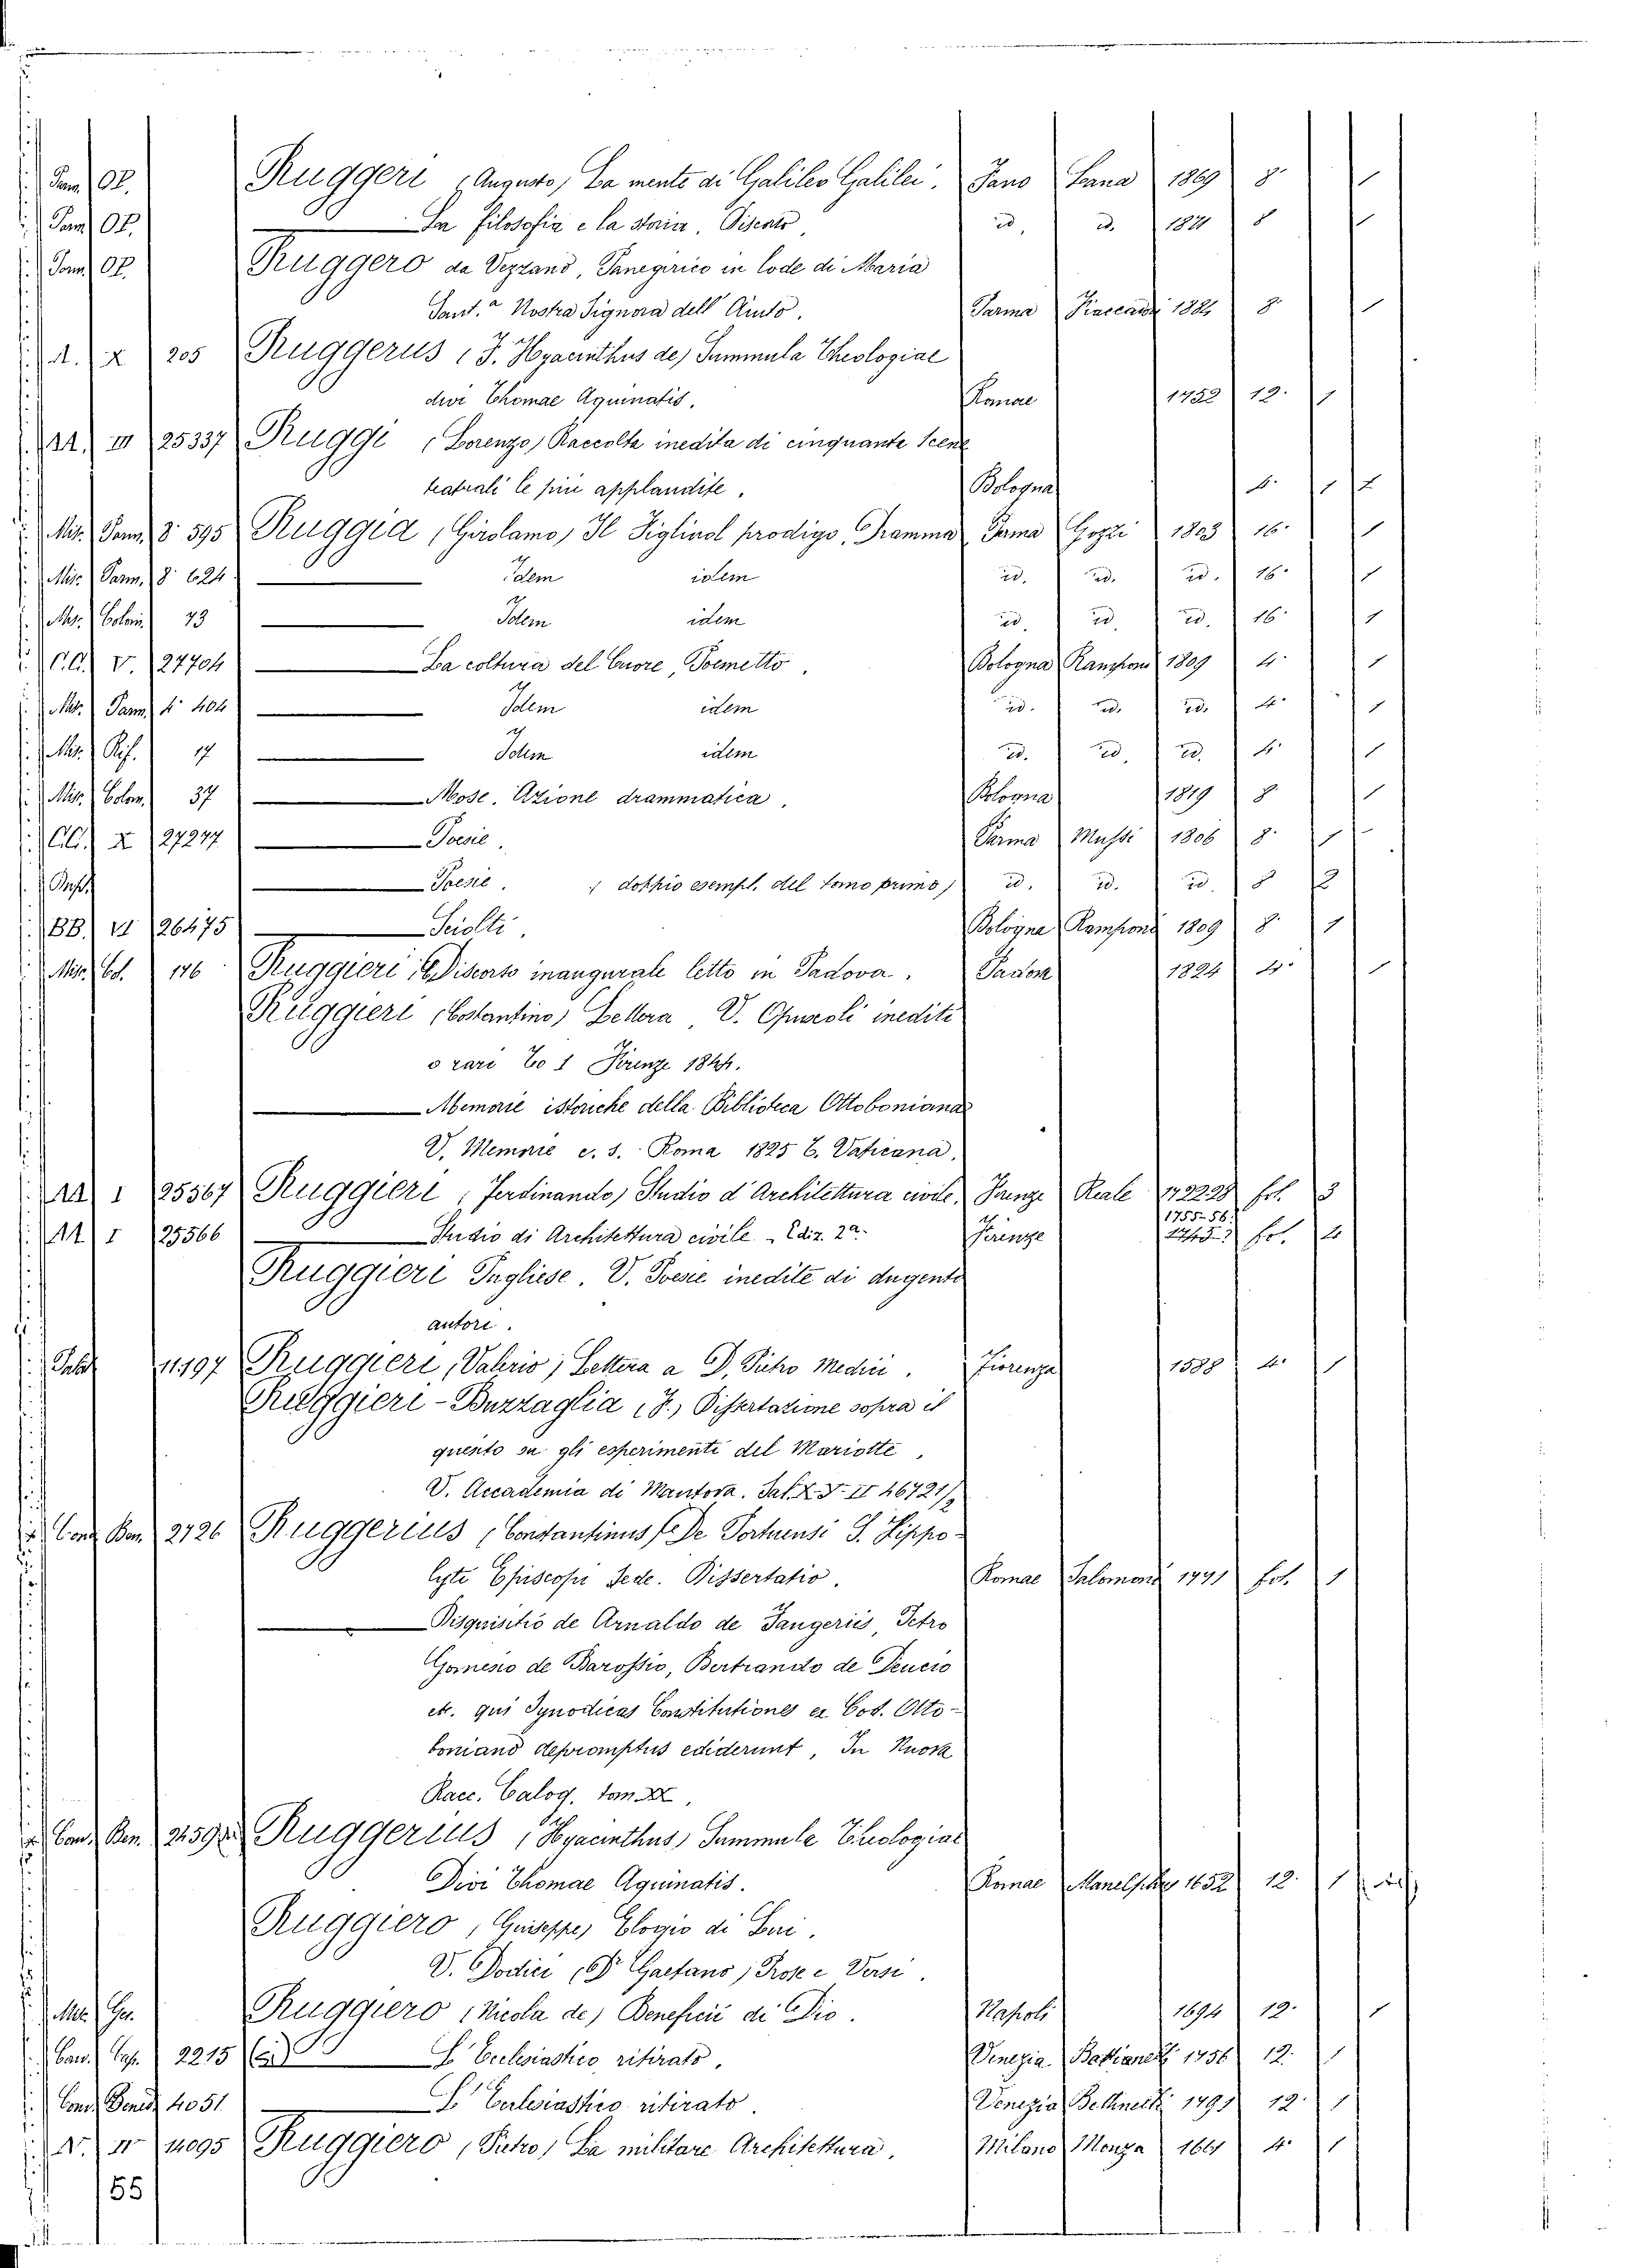 Parm. Op. Ruggeri (Augusto) La mente di Galileo Galilei. Fano Lana 1869 8° 1
Parm. Op. La filosofia e la storia. Discorso id. id. 1871 8 1
Parm. Op. Ruggero da Vezzano, Panegirico in lode di Maria
Sant.a Nostra Signora dell' Aiuto. Parma Fiaccadori 1881 8° 1
A. X 205 Ruggerus (F. Hyacinthus de) Summula Theologiae
divi Thomae Aquinatis. Romae 1752 12. 1
AA. III 25337 Ruggi (Lorenzo) Raccolta inedita di cinquanta Scene
teatrali le più applaudite. Bologna 4. 1
Mis. Parm. 8° 595 Ruggia (Girolamo) Il Figliuol prodigo, Dramma Parma Gozzi 1803 16. 1
Mis. Parm. 8° 624 Idem idem id. id. id. 16. 1
Mis. Colom. 73 Idem idem id. id. id. 16. 1
CC. V. 27704 La coltura del Cuore, Poemetto. Bologna Ramponi 1809 4. 1
Mis. Parm. 4° 404 Idem idem id. id. id. 4. 1
Mis. Rif. 17 Idem idem id. id. id. 4. 1
Mis. Colom. 37 Mosè. Azione drammatica. Bologna 1819 8 1
CC. X 27277 Poesie. Parma Mussi 1806 8. 1
Poesie. (doppio esempl. del tomo primo) id. id. id. 8 2
BB. VI 26475 Sciolti. Bologna Ramponi 1809 8. 1
Mis. Col. 176 Ruggieri, Discorso inaugurale letto in Padova. Padova 1824 4. 1
Ruggieri (Costantino) Lettera, V. Opuscoli inediti
o rari To 1 Firenze 1844.
Memorie istoriche della Biblioteca Ottoboniana
V. Memorie e. s. Roma 1825 B. Vaticana.
AA I 25567 Ruggieri (Ferdinando) Studio d'Architettura civile, Firenze Reale 1722.28 fol. 3
AA I 25566 Studio di Architettura civile - Ediz. 2a. Firenze 1755-56. fol.
Ruggieri Pugliese. V. Poesie inedite di dugento
autori.
Palat. 11197 Ruggieri (Valerio) Lettera a D. Pietro Medici. Fiorenza 1588 4. 1
Ruggieri-Buzzaglia (F.) Dissertazione sopra il
quesito su gli esperimenti del Mariotte,
V. Accademia di Mantova. Sal. X. V. II 46721/2
Cong. Ben. 2726 Ruggerius (Constantinus) De Portuensi S. Hippo-
lyti Episcopi Sede. Dissertatio. Romae Salomoni 1771 fol. 1
Disquisitio de Arnaldo de Faugeriis, Petro
Gomesio de Barossio, Bertrando de Deucio
etc. qui Synodicas Constitutiones ex Cod. Otto-
boniano depromptas ediderunt, In Nuova
Racc. Calog. tom. XX.
Con. Ben. Ruggerius (Hyacinthus) Summula Theologiae
Divi Thomae Aquinatis. Romae Manelphi 1652 12. 1
Ruggiero (Giuseppe) Elogio di Seri.
V. Dodici (Dr Gaetano) Prose e Versi.
Mis. Ger. Ruggiero (Nicola de) Beneficii di Dio. Napoli 1694 12. 1
Con. Cap. 2215 L' Ecclesiastico ritirato. Venezia Bettinelli 1756 12. 1
Con. Bened. 4051 L' Ecclesiastico ritirato. Venezia Bettinelli 1791 12. 1
N. IV 14095 Ruggiero (Pietro) La militare Architettura. Milano Monza 1661 4. 1
55